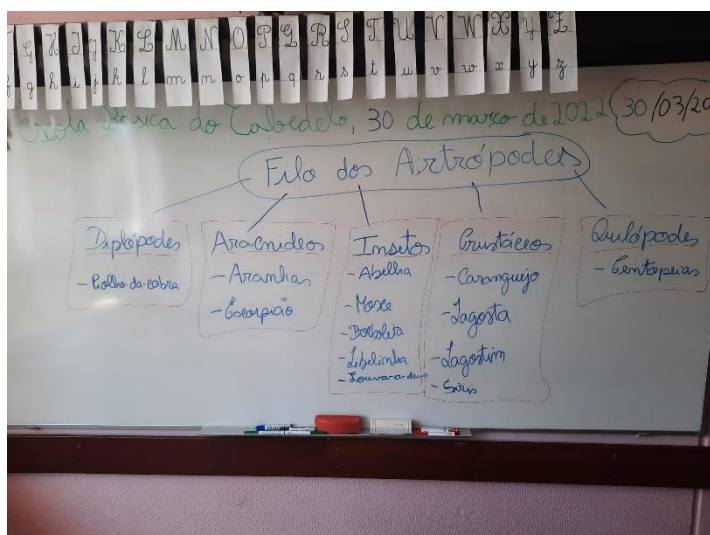 G H I J K L M N O P Q R S T U V W X Y Z
g h i j k l m n o p q r s t u v w x y z
Escola Básica do Cabedelo, 30 de março de 2022
30/03/20
Filo dos Artrópodes
Diplópodes
- Piolho-da-cobra
Aracnídeos
- Aranhas
- Escorpião
Insetos
- Abelha
- Mosca
- Borboleta
- Libelinha
- Louva-a-deus
Crustáceos
- Caranguejo
- Lagosta
- Lagostim
- Siris
Quilópodes
- Centopeias